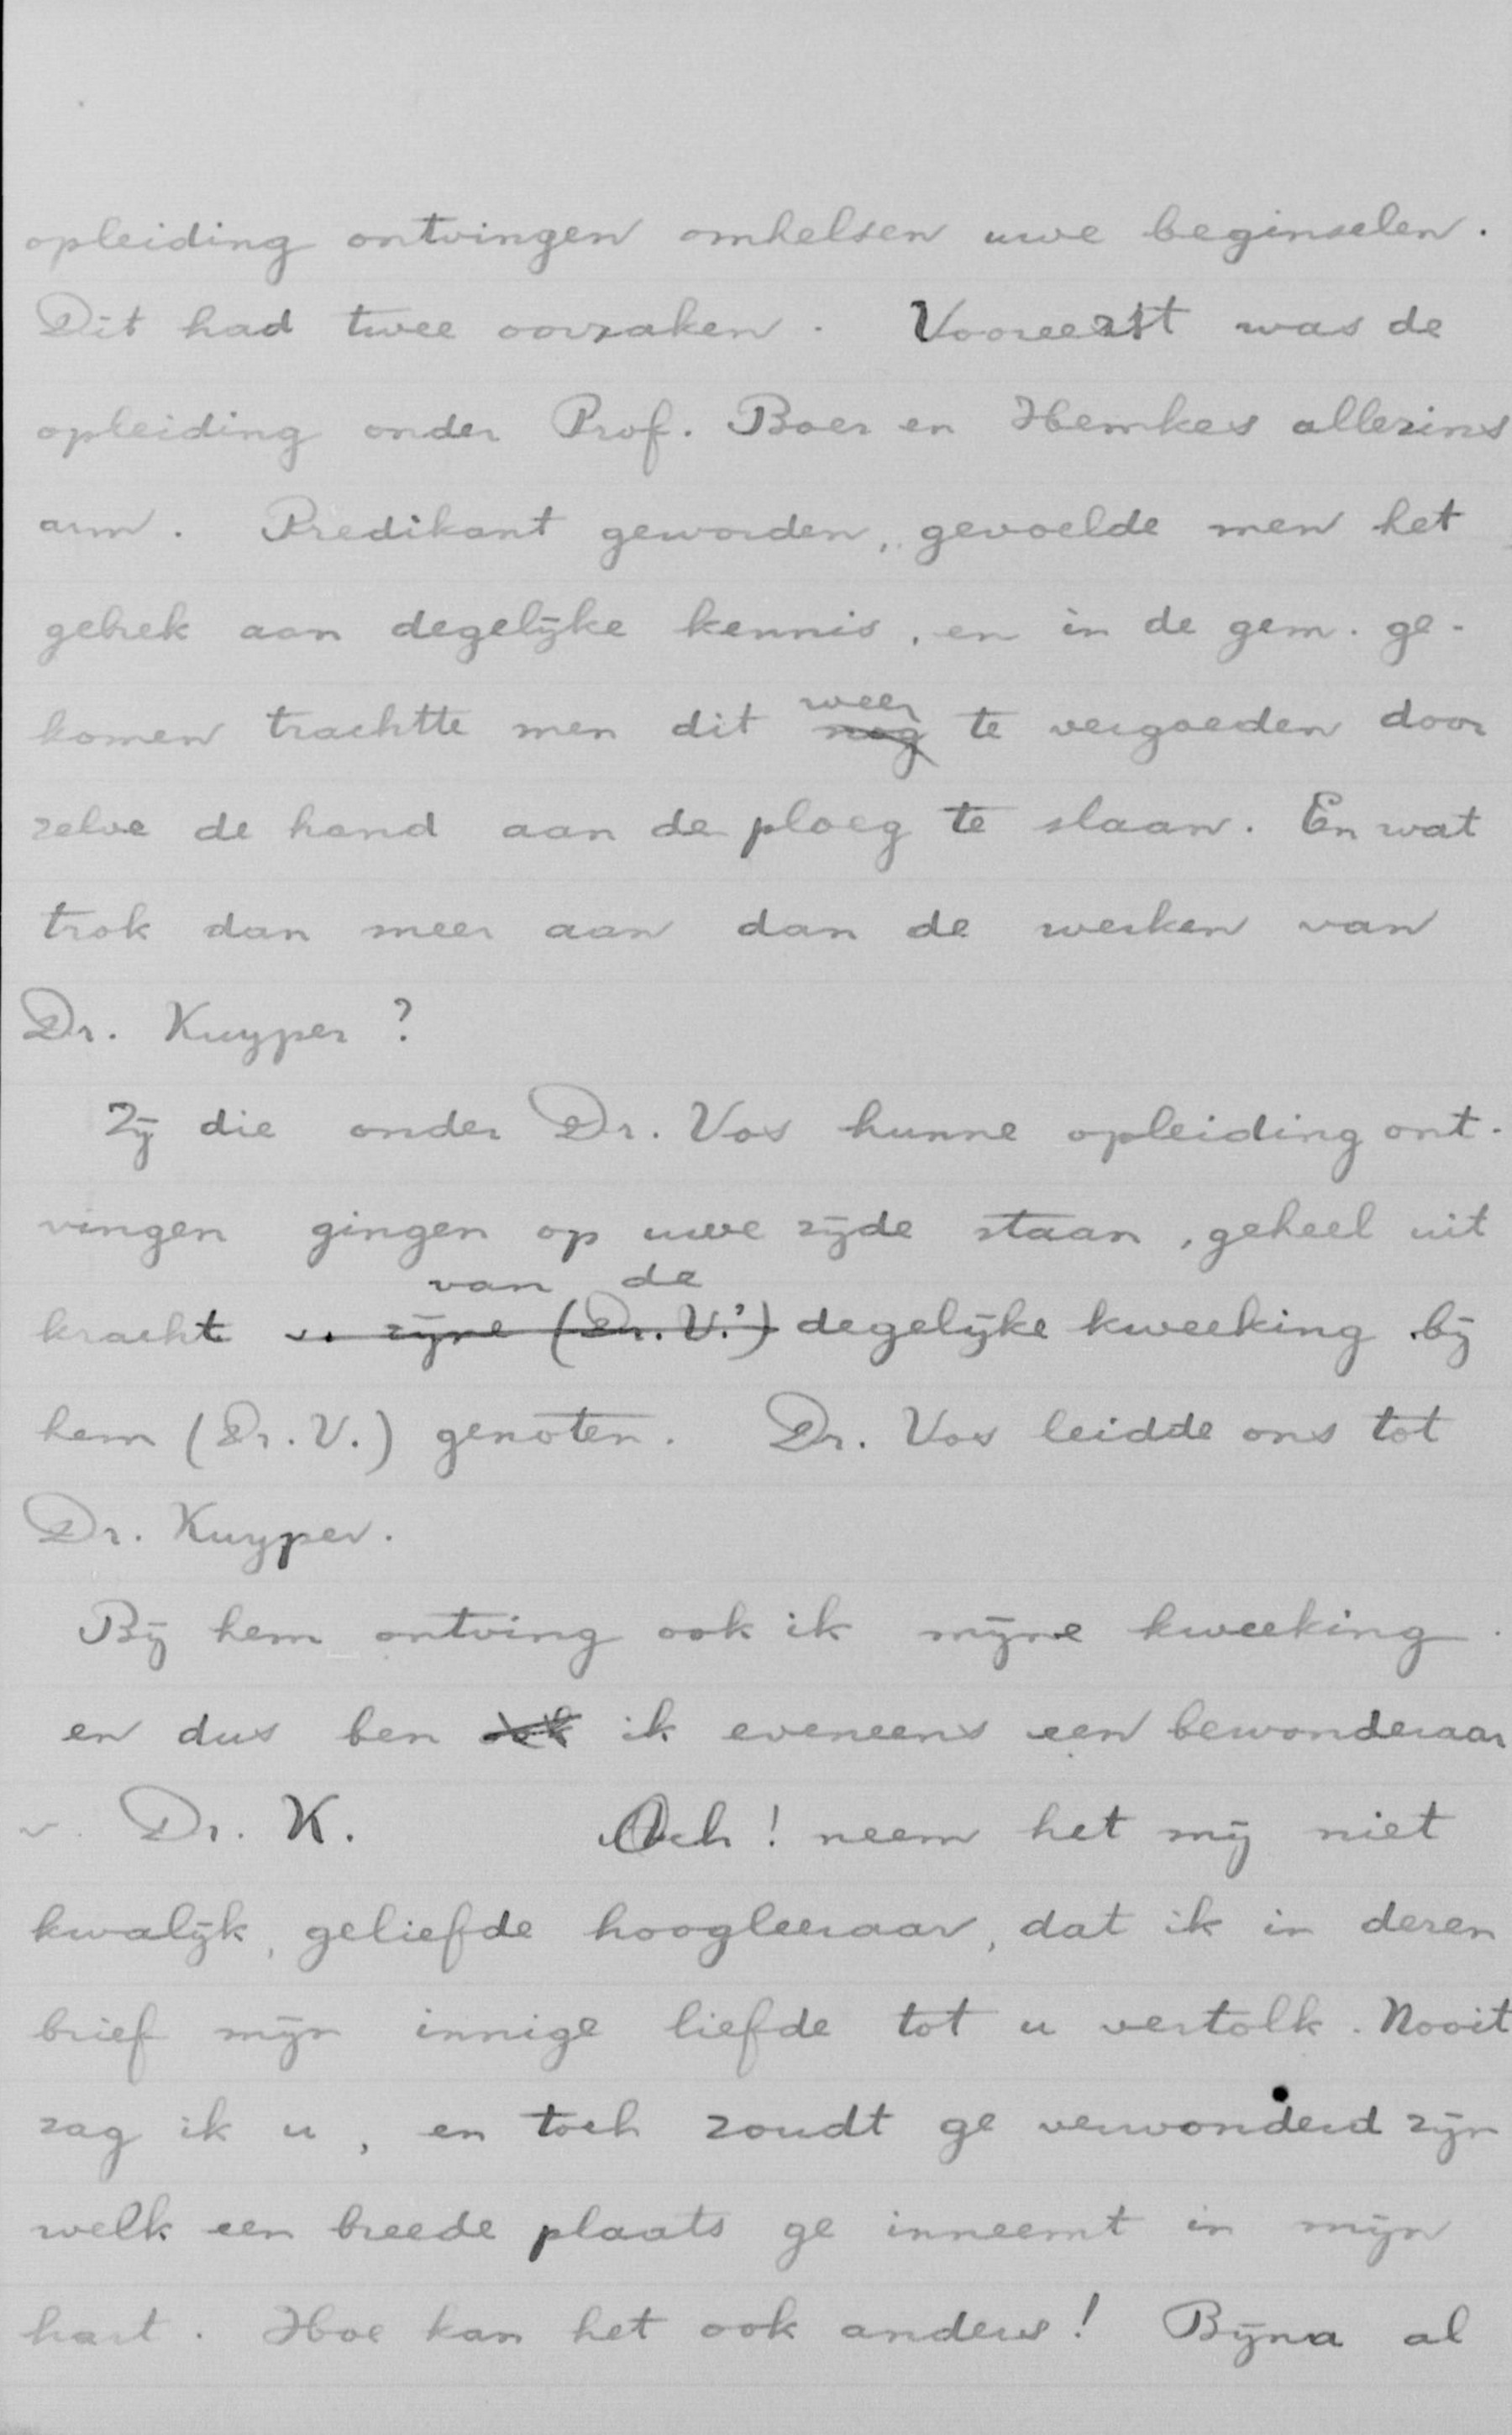 opleiding ontvingen omhelsen uwe beginselen.
Dit had twee oorzaken. Vooreerst was de
opleiding onder Prof. Boer en Hemkes allezins
arm. Predikant geworden, gevoelde men het
gebrek aan degelijke kennis, en in de gem. ge-
komen trachtte men dit ~~nog~~ weer te vergoeden door
zelve de hand aan de ploeg te slaan. En wat
trok dan meer aan dan de werken van
Dr. Kuyper?
Zij die onder Dr. Vos hunne opleiding ont-
vingen gingen op uwe zijde staan, geheel uit
kracht ~~v. zijne (Dr. V.')~~ van de degelijke kweeking bij
hem (Dr. V.) genoten. Dr. Vos leidde ons tot
Dr. Kuyper.
Bij hem ontving ook ik mijne kweeking.
en dus ben ~~ook~~ ik eveneens een bewonderaar
v. Dr. K. Och! neem het mij niet
kwalijk, geliefde hoogleeraar, dat ik in dezen
brief mijn innige liefde tot u vertolk. Nooit
zag ik u, en toch zoudt ge verwonderd zijn
welk een breede plaats ge inneemt in mijn
hart. Hoe kan het ook anders! Bijna al